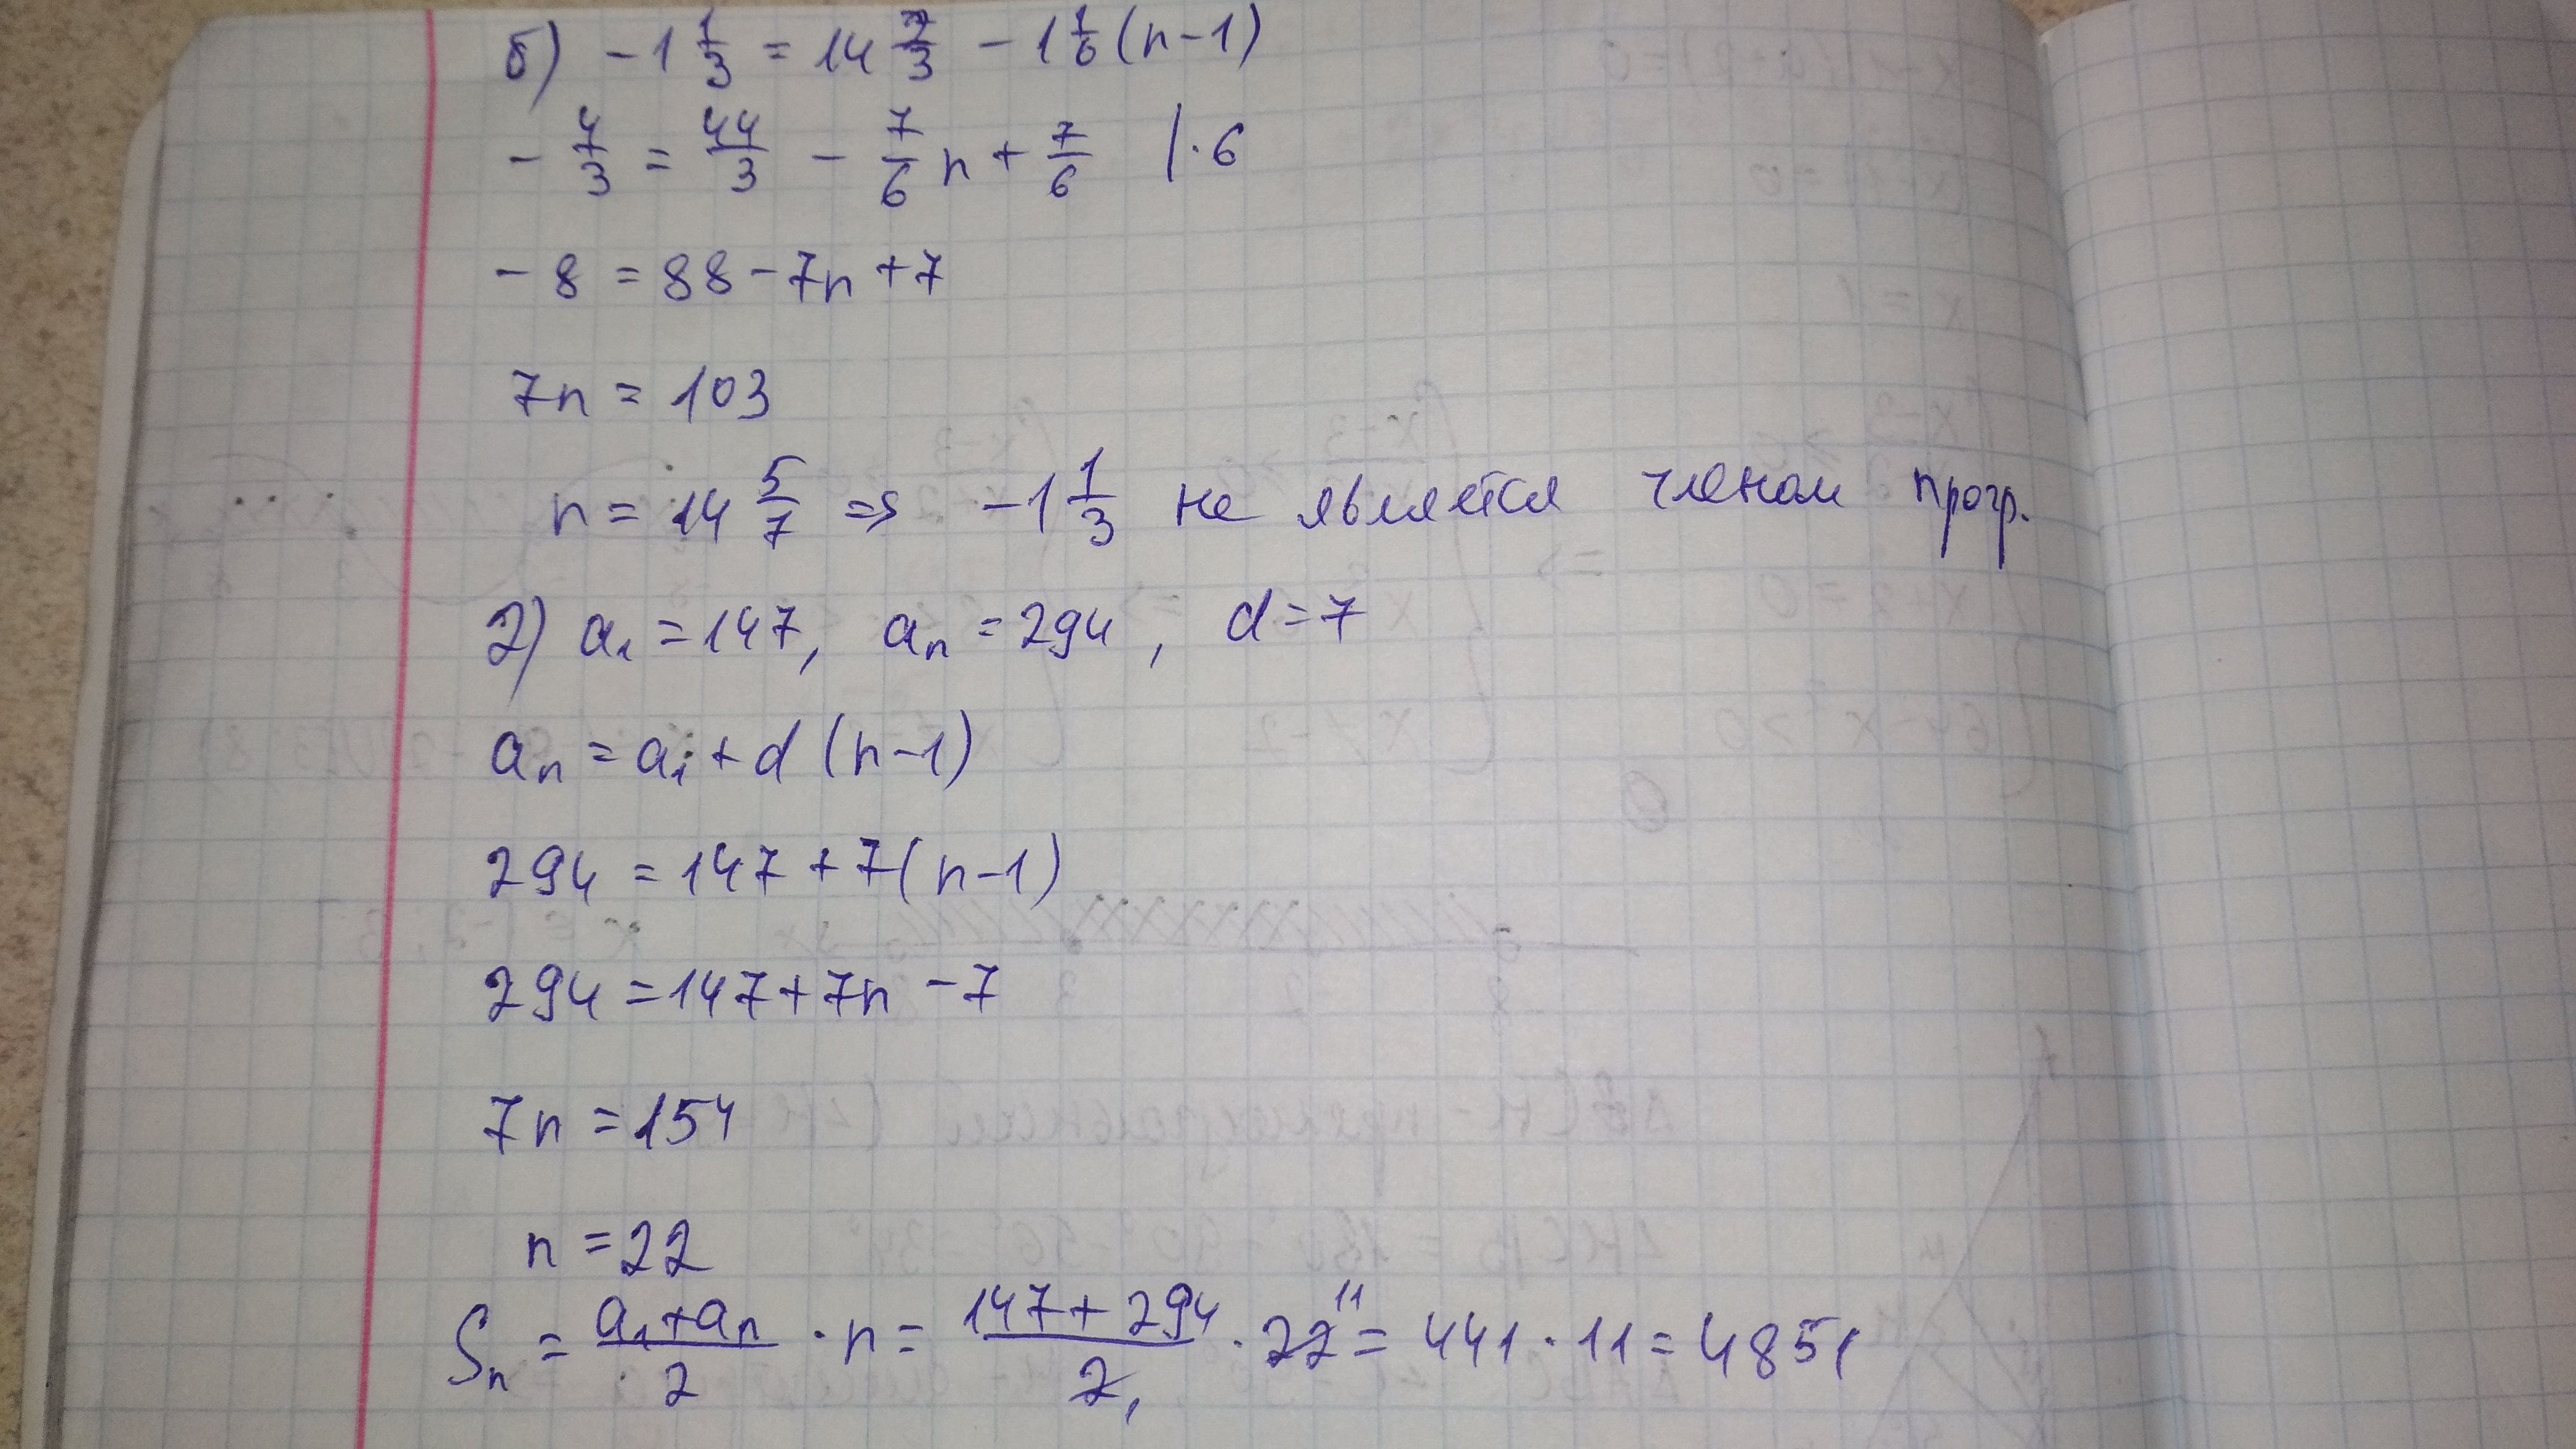 б) -1 1/3 = 14 2/3 - 1 1/6 (n-1)
- 4/3 = 44/3 - 7/6 n + 7/6 | · 6
- 8 = 88 - 7n + 7
7n = 103
n = 14 5/7 => -1 1/3 не является членом прогр.
2) a₁ = 147, aₙ = 294, d = 7
aₙ = a₁ + d (n-1)
294 = 147 + 7(n-1)
294 = 147 + 7n - 7
7n = 154
n = 22
Sₙ = (a₁+aₙ)/2 · n = (147+294)/2 · 22 = 441 · 11 = 4851